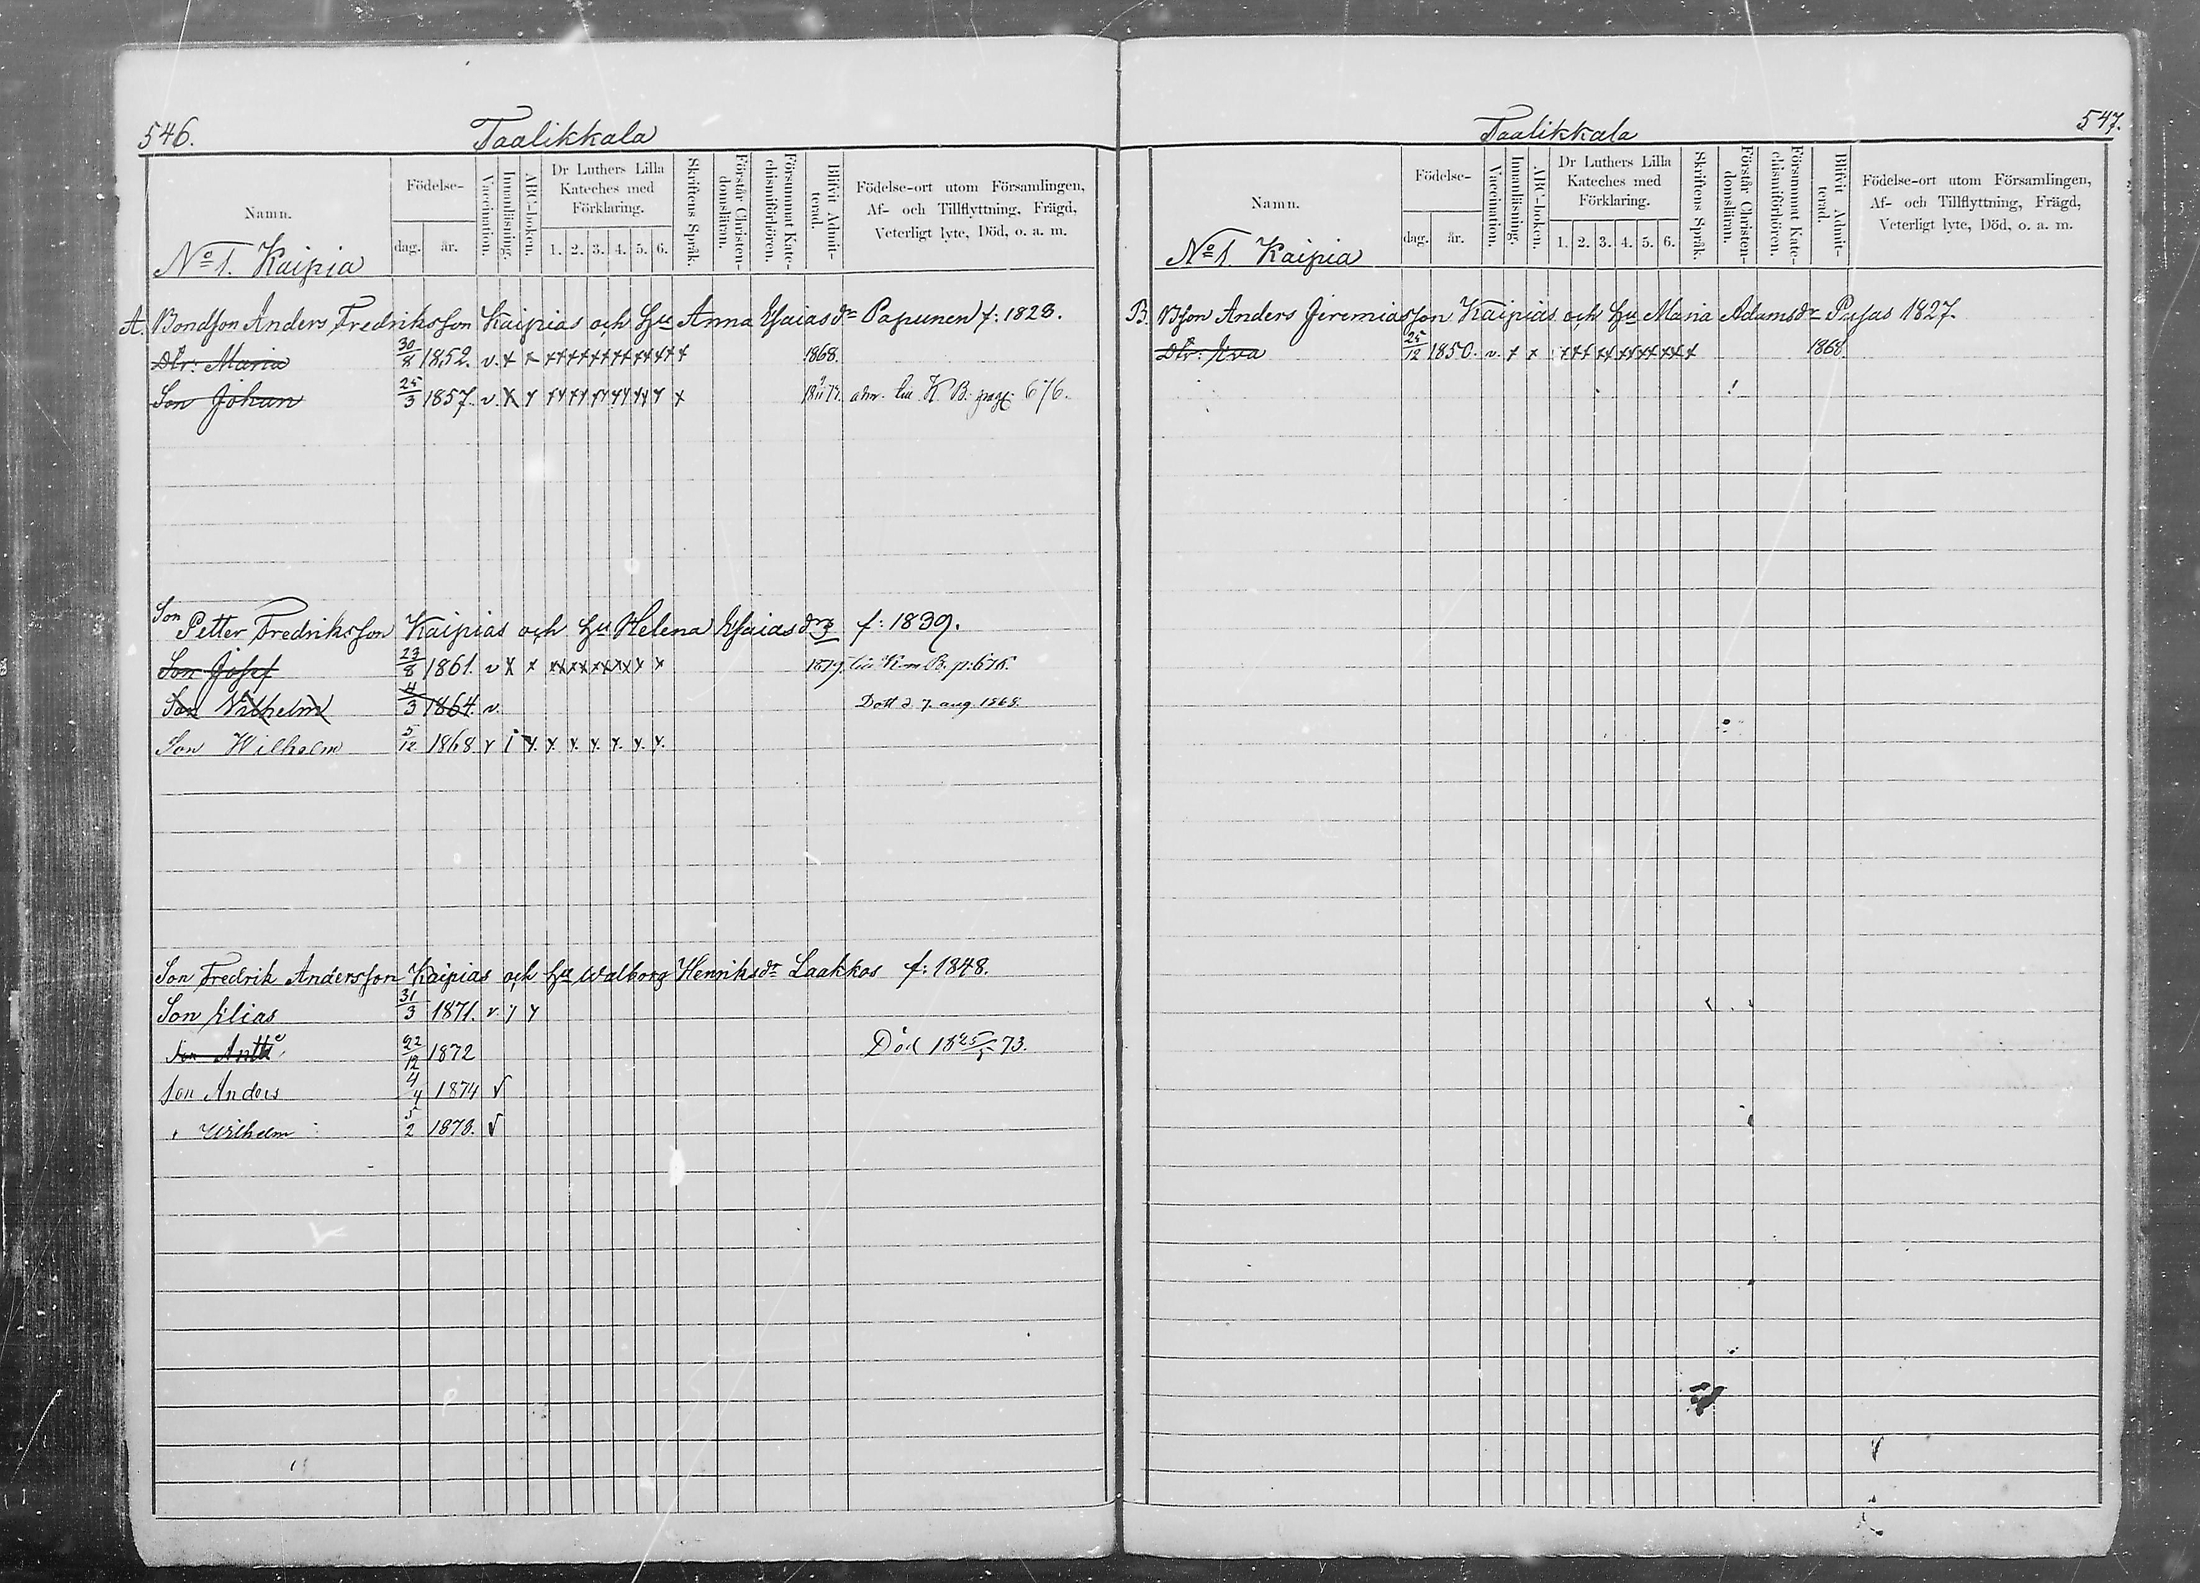 546.
Taalikkala
Namn.
Födelse-
dag.
år.
Vaccination.
Innanläsning.
ABC-boken.
Dr Luthers Lilla
Kateches med
Förklaring.
1. 2. 3. 4. 5. 6.
Skriftens Språk.
Förstår Christen-
domsläran.
Försummat Kate-
chismiförhören.
Blifvit Admit-
terad.
Födelse-ort utom Församlingen,
Af- och Tillflyttning, Frägd,
Veterligt lyte, Död, o. a. m.
No 1. Kaipia
A. Bondson Anders Fredriksson Kaipias och Hu Anna Esaiasdr Papunen f: 1828.
Dtr: Maria 30/8 1852. v. x x x x x x x x x x x x x x 1868.
Son Johan 25/3 1857. v. x x x x x x x x x x x x x x K B. pag: 676.
Son Petter Fredriksson Kaipias och Hu Helena Esaiasdr f: 1839.
Son Josef 23/8 1861. v x x x x x x x x x x x x 1879. till Km B. p: 676.
Son Vilhelm 4/3 1864 v. Död d 7 aug 1868.
Son Wilhelm 5/12 1868 v i x. x x. x. x. x. x.
Son Fredrik Andersson Kaipias och Hu Walborg Henriksdr Laakkos f: 1848.
Son Elias 31/3 1871. v
Son Antti 22/12 1872 Död 18 25/5 73.
Son Anders 4/4 1874 v
" Wilhelm 5/2 1878. v
547.
Taalikkala
Namn.
Födelse-
dag.
år.
Vaccination.
Innanläsning.
ABC-boken.
Dr Luthers Lilla
Kateches med
Förklaring.
1. 2. 3. 4. 5. 6.
Skriftens Språk.
Förstår Christen-
domsläran.
Försummat Kate-
chismiförhören.
Blifvit Admit-
terad.
Födelse-ort utom Församlingen,
Af- och Tillflyttning, Frägd,
Veterligt lyte, Död, o. a. m.
No 1. Kaipia
B. Bson Anders Jeremiasson Kaipias och Hu Maria Adamsdr Pusas 1827.
Dtr: Eva 25/12 1850. v. x x x x x x x x x x x x x x 1868